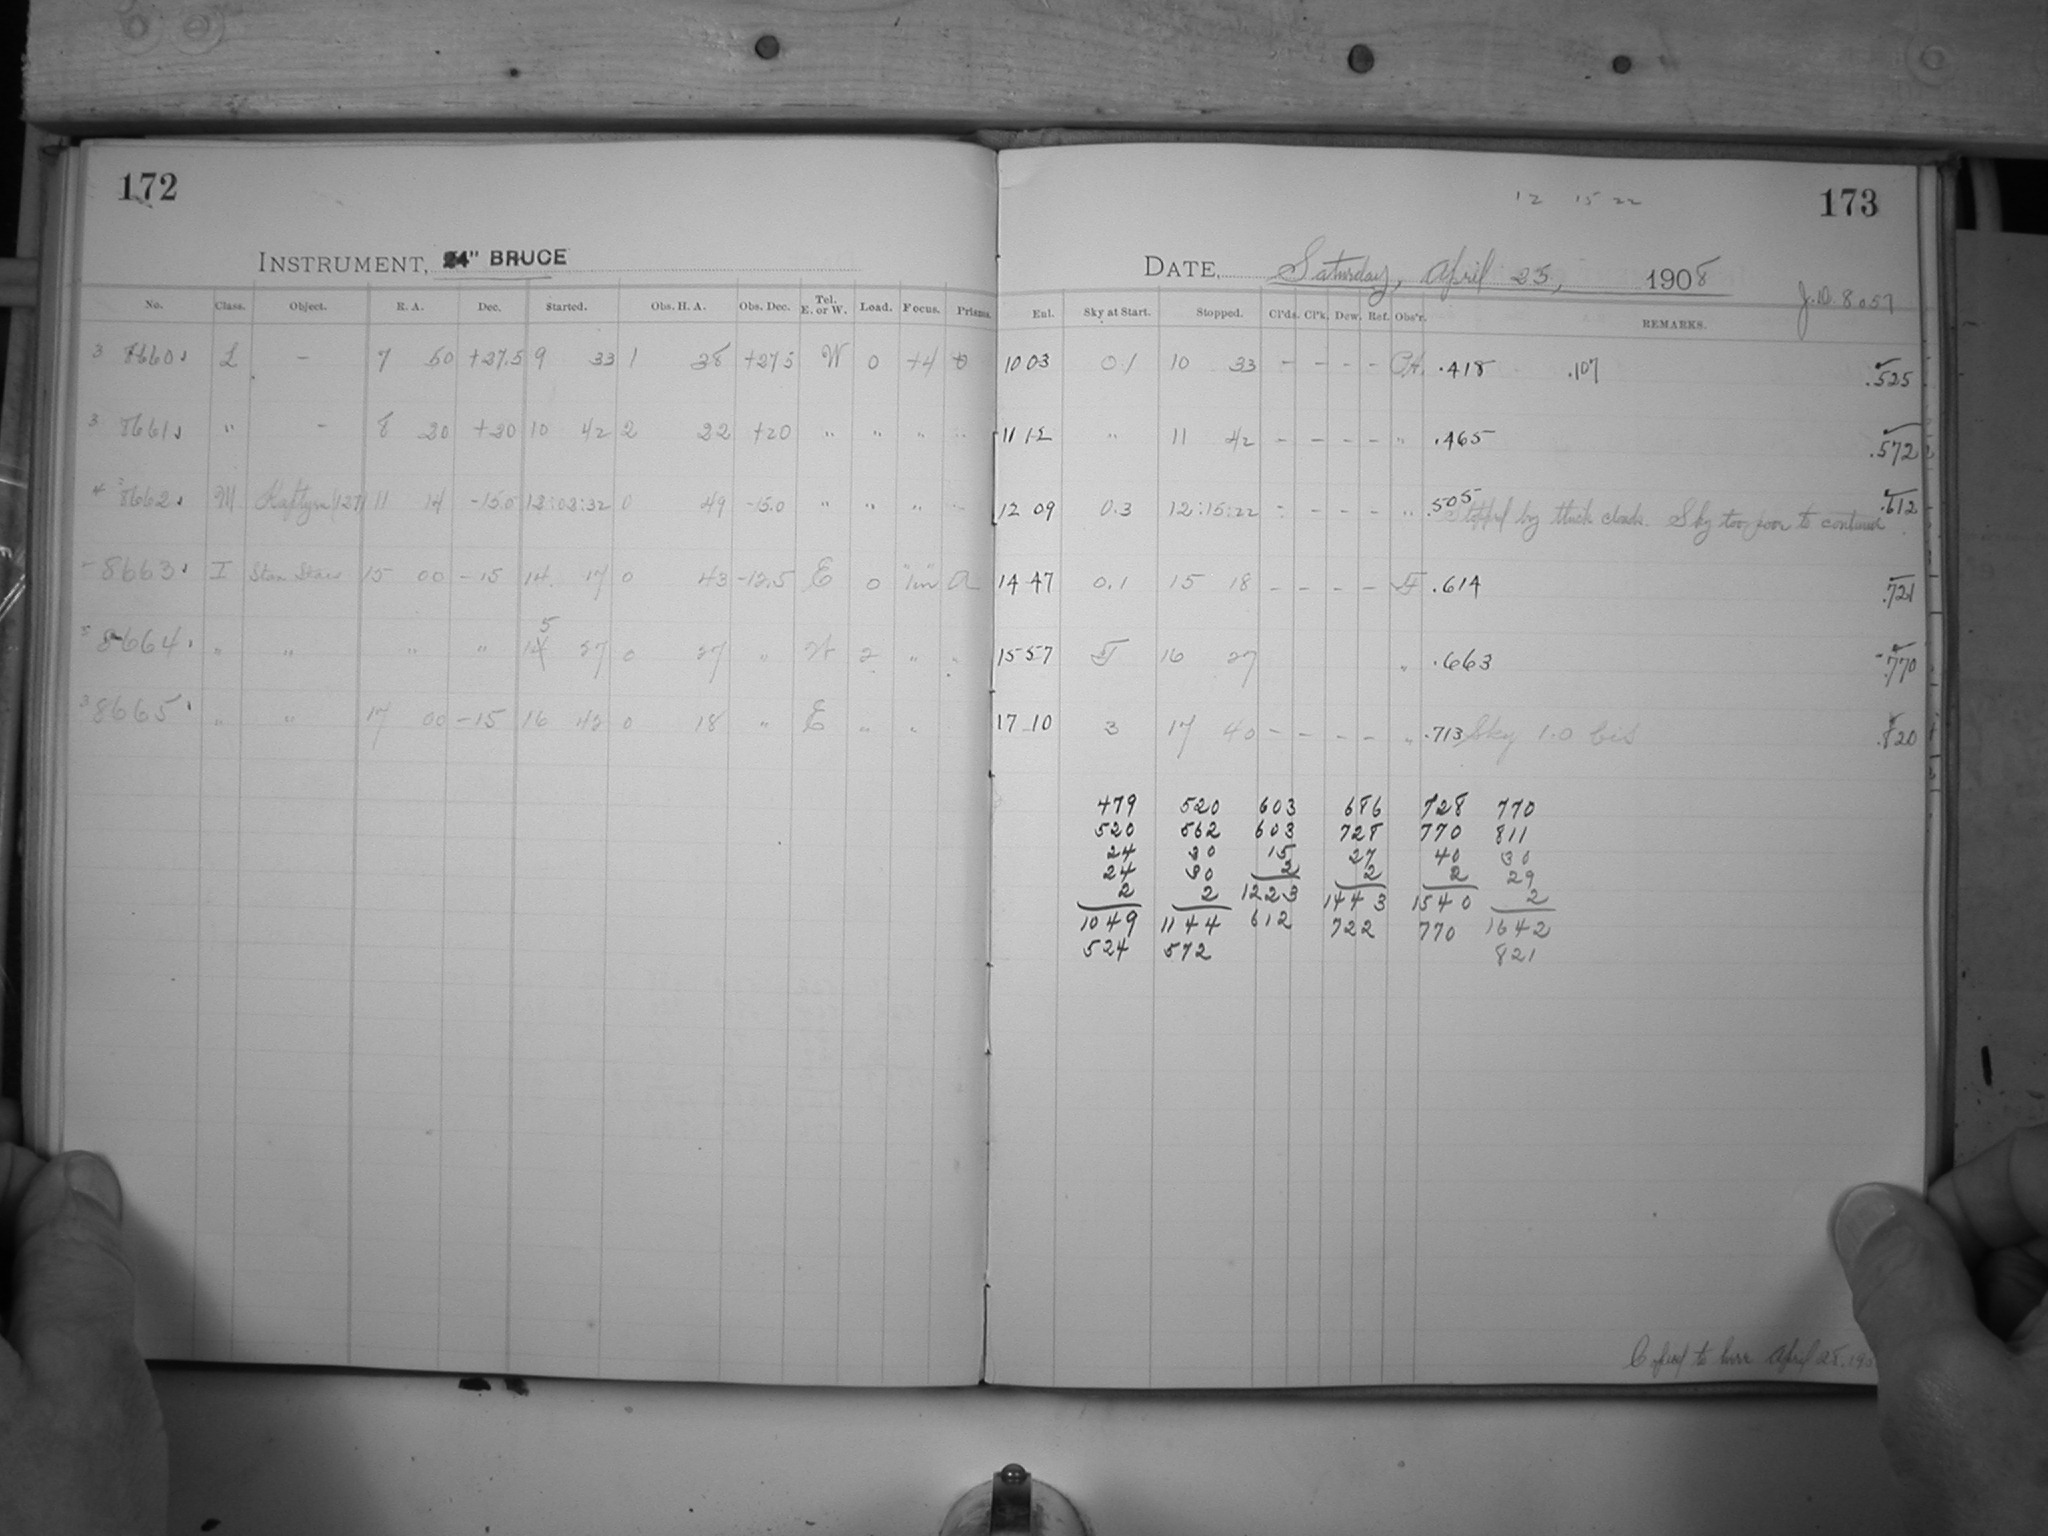 172
INSTRUMENT, 24" BRUCE
No. Class. Object. R. A. Dec. Started. Obs. H. A. Obs. Dec. Tel. E. or W. Load. Focus. Prisms.
3 8660 L – 7 50 +27.5 9 33 1 38 +27.5 W 0 +4 0
3 8661 " – 8 20 +20 10 42 2 22 +20 " " " "
4 8662 M (127) 11 14 -15.0 12:02:32 0 49 -15.0 " " " "
8663 I Stan Stars 15 00 -15 14 17 0 43 -12.5 E 0 a
5 8664 " " " " 15 27 0 27 " W 2 " "
3 8665 " " 17 00 -15 16 42 0 18 " E " "
12 15 22
173
DATE, Saturday, April 25, 1908
J.D. 8057
Eul. Sky at Start. Stopped. Cl'ds. Cl'k. Dew. Ref. Obs'r. REMARKS.
10 03 0.1 10 33 – – – – .418 .107 .525
11 12 " 11 42 – – – – " .465 .572
12 09 0.3 12:15:22 – – – – " .505 Stopped by thick clouds. Sky too poor to continue .612
14 47 0.1 15 18 – – – – .614 .721
15 57 16 27 " .663 .770
17 10 3 17 40 – – – – " .713 Sky 1.0 .820
479 520 603 686 728 770
520 562 603 728 770 811
24 30 15 27 40 30
24 30 2 2 2 29
2 2 1223 1443 1540 2
1049 1144 612 722 770 1642
524 572 821
Copied to here April 25, 190